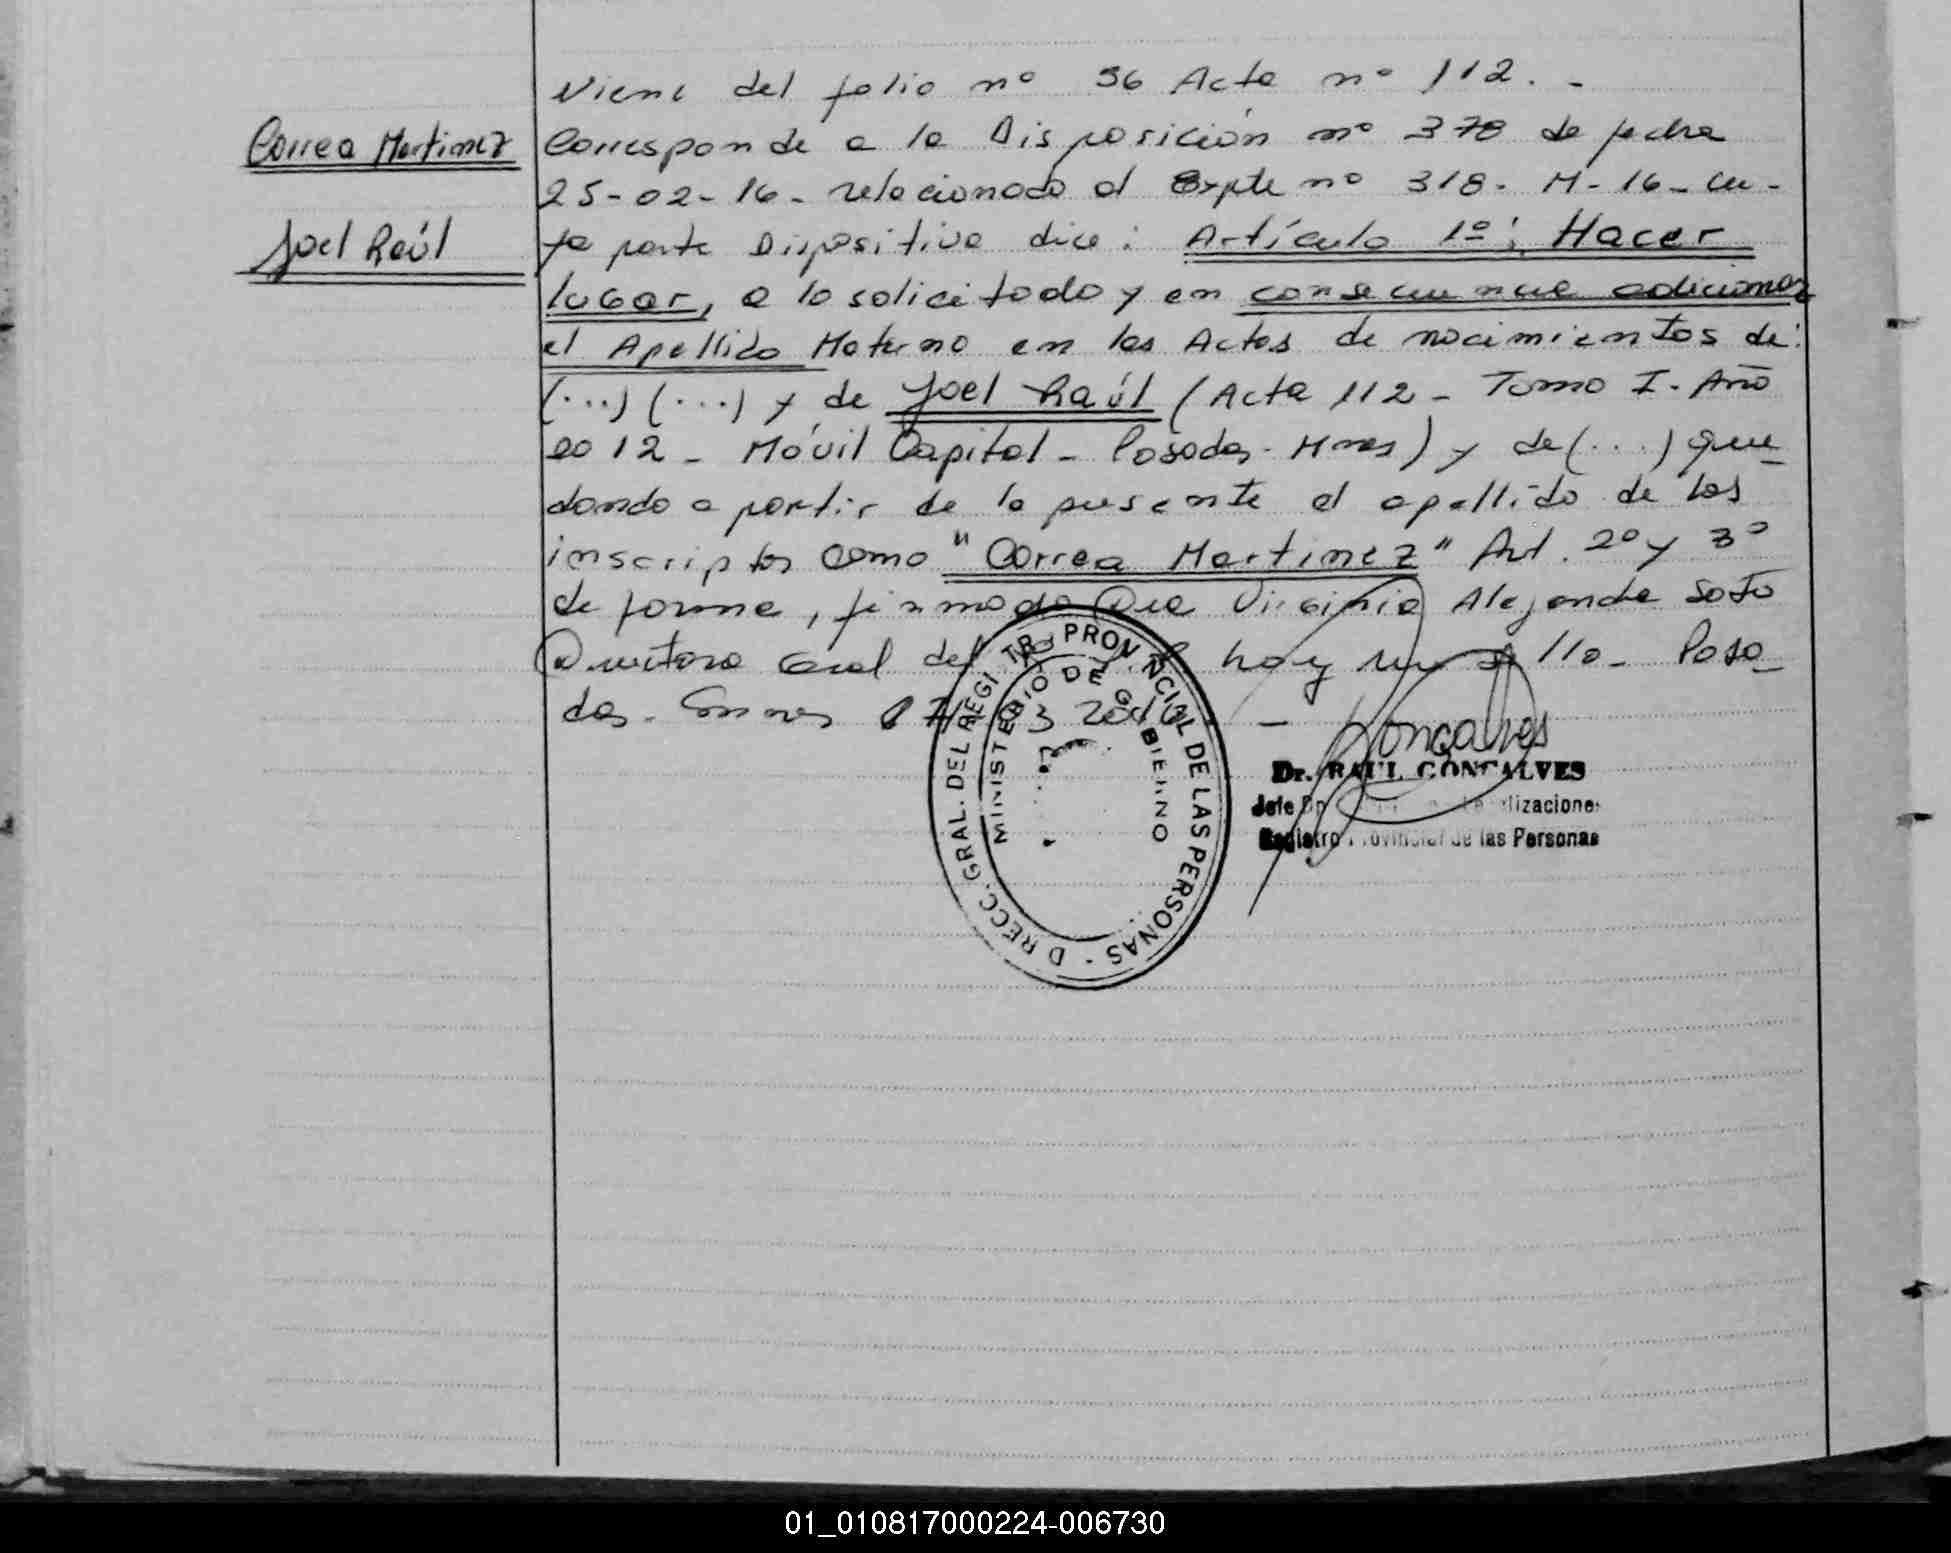 Correa Martinez
Joel Raúl
Viene del folio nº 56 Acta nº 112. -
Corresponde a la Disposición nº 378 de fecha
25-02-16- relacionado al Expte nº 318. M-16- cu-
ya parte Dispositiva dice: Artículo 1º: Hacer
lugar, a lo solicitado y en consecuencia adicionar
el Apellido Materno en las Actas de nacimientos de:
(...) (...) y de Joel Raúl (Acta 112 - Tomo I. Año
2012 - Móvil Capital - Posadas - Mnes) y de (...) que-
dando a partir de la presente el apellido de los
inscriptos como "Correa Martinez" Art. 2º y 3º
de forma, firmado Dra Virginia Alejandra Soto
Directora Gral del hoy Posa-
das. 3 2016 -
DIRECC. GRAL. DEL REGISTRO PROVINCIAL DE LAS PERSONAS -
MINISTERIO DE GOBIERNO
Goncalves
Dr. RAUL GONCALVES
Jefe
Registro Provincial de las Personas
01_010817000224-006730